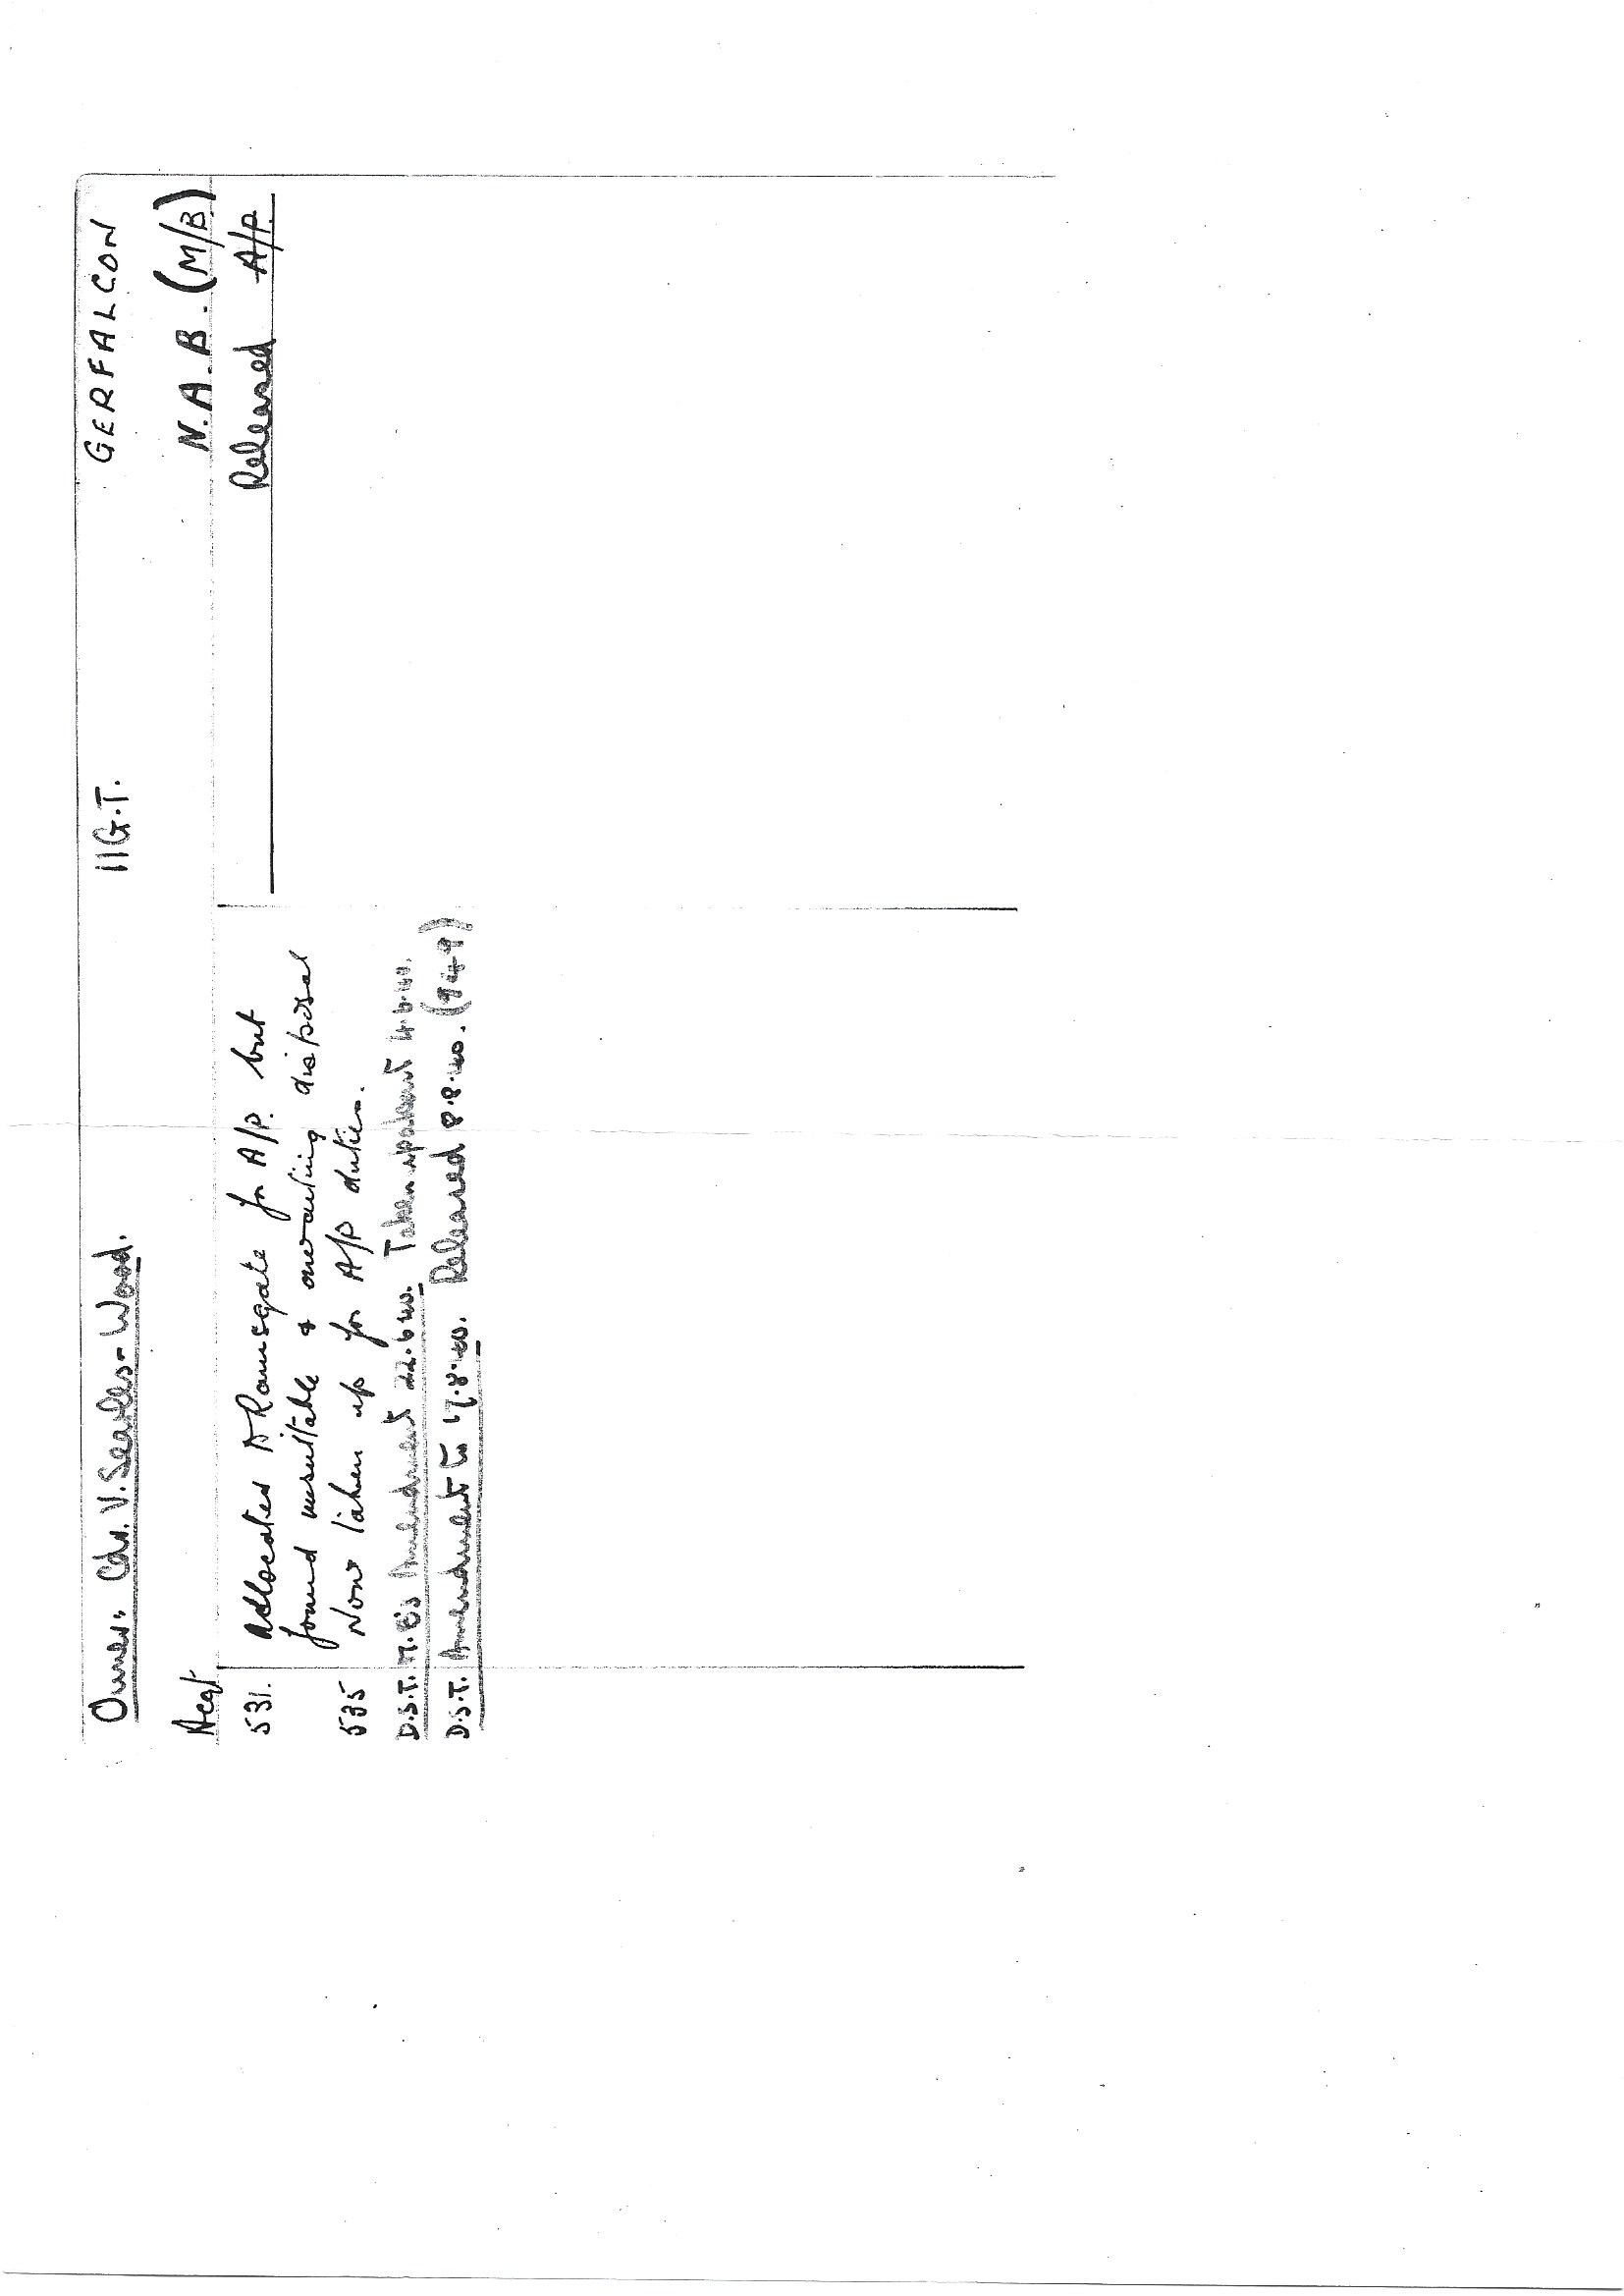 Owner: Cdr. V. Searles-Wood. 11G.T. GERFALCON
N.A.B. (M/B)
Acq/
Released A/P.
531. Allocated to Ramsgate for A/P. but
found unsuitable & awaiting disposal
535 Now taken up for A/P duties.
D.S.T. M.B's Amendment 22.6.40. Taken up about 4.6.40.
D.S.T. Amendment to 17.8.40. Released 8.8.40. (944)